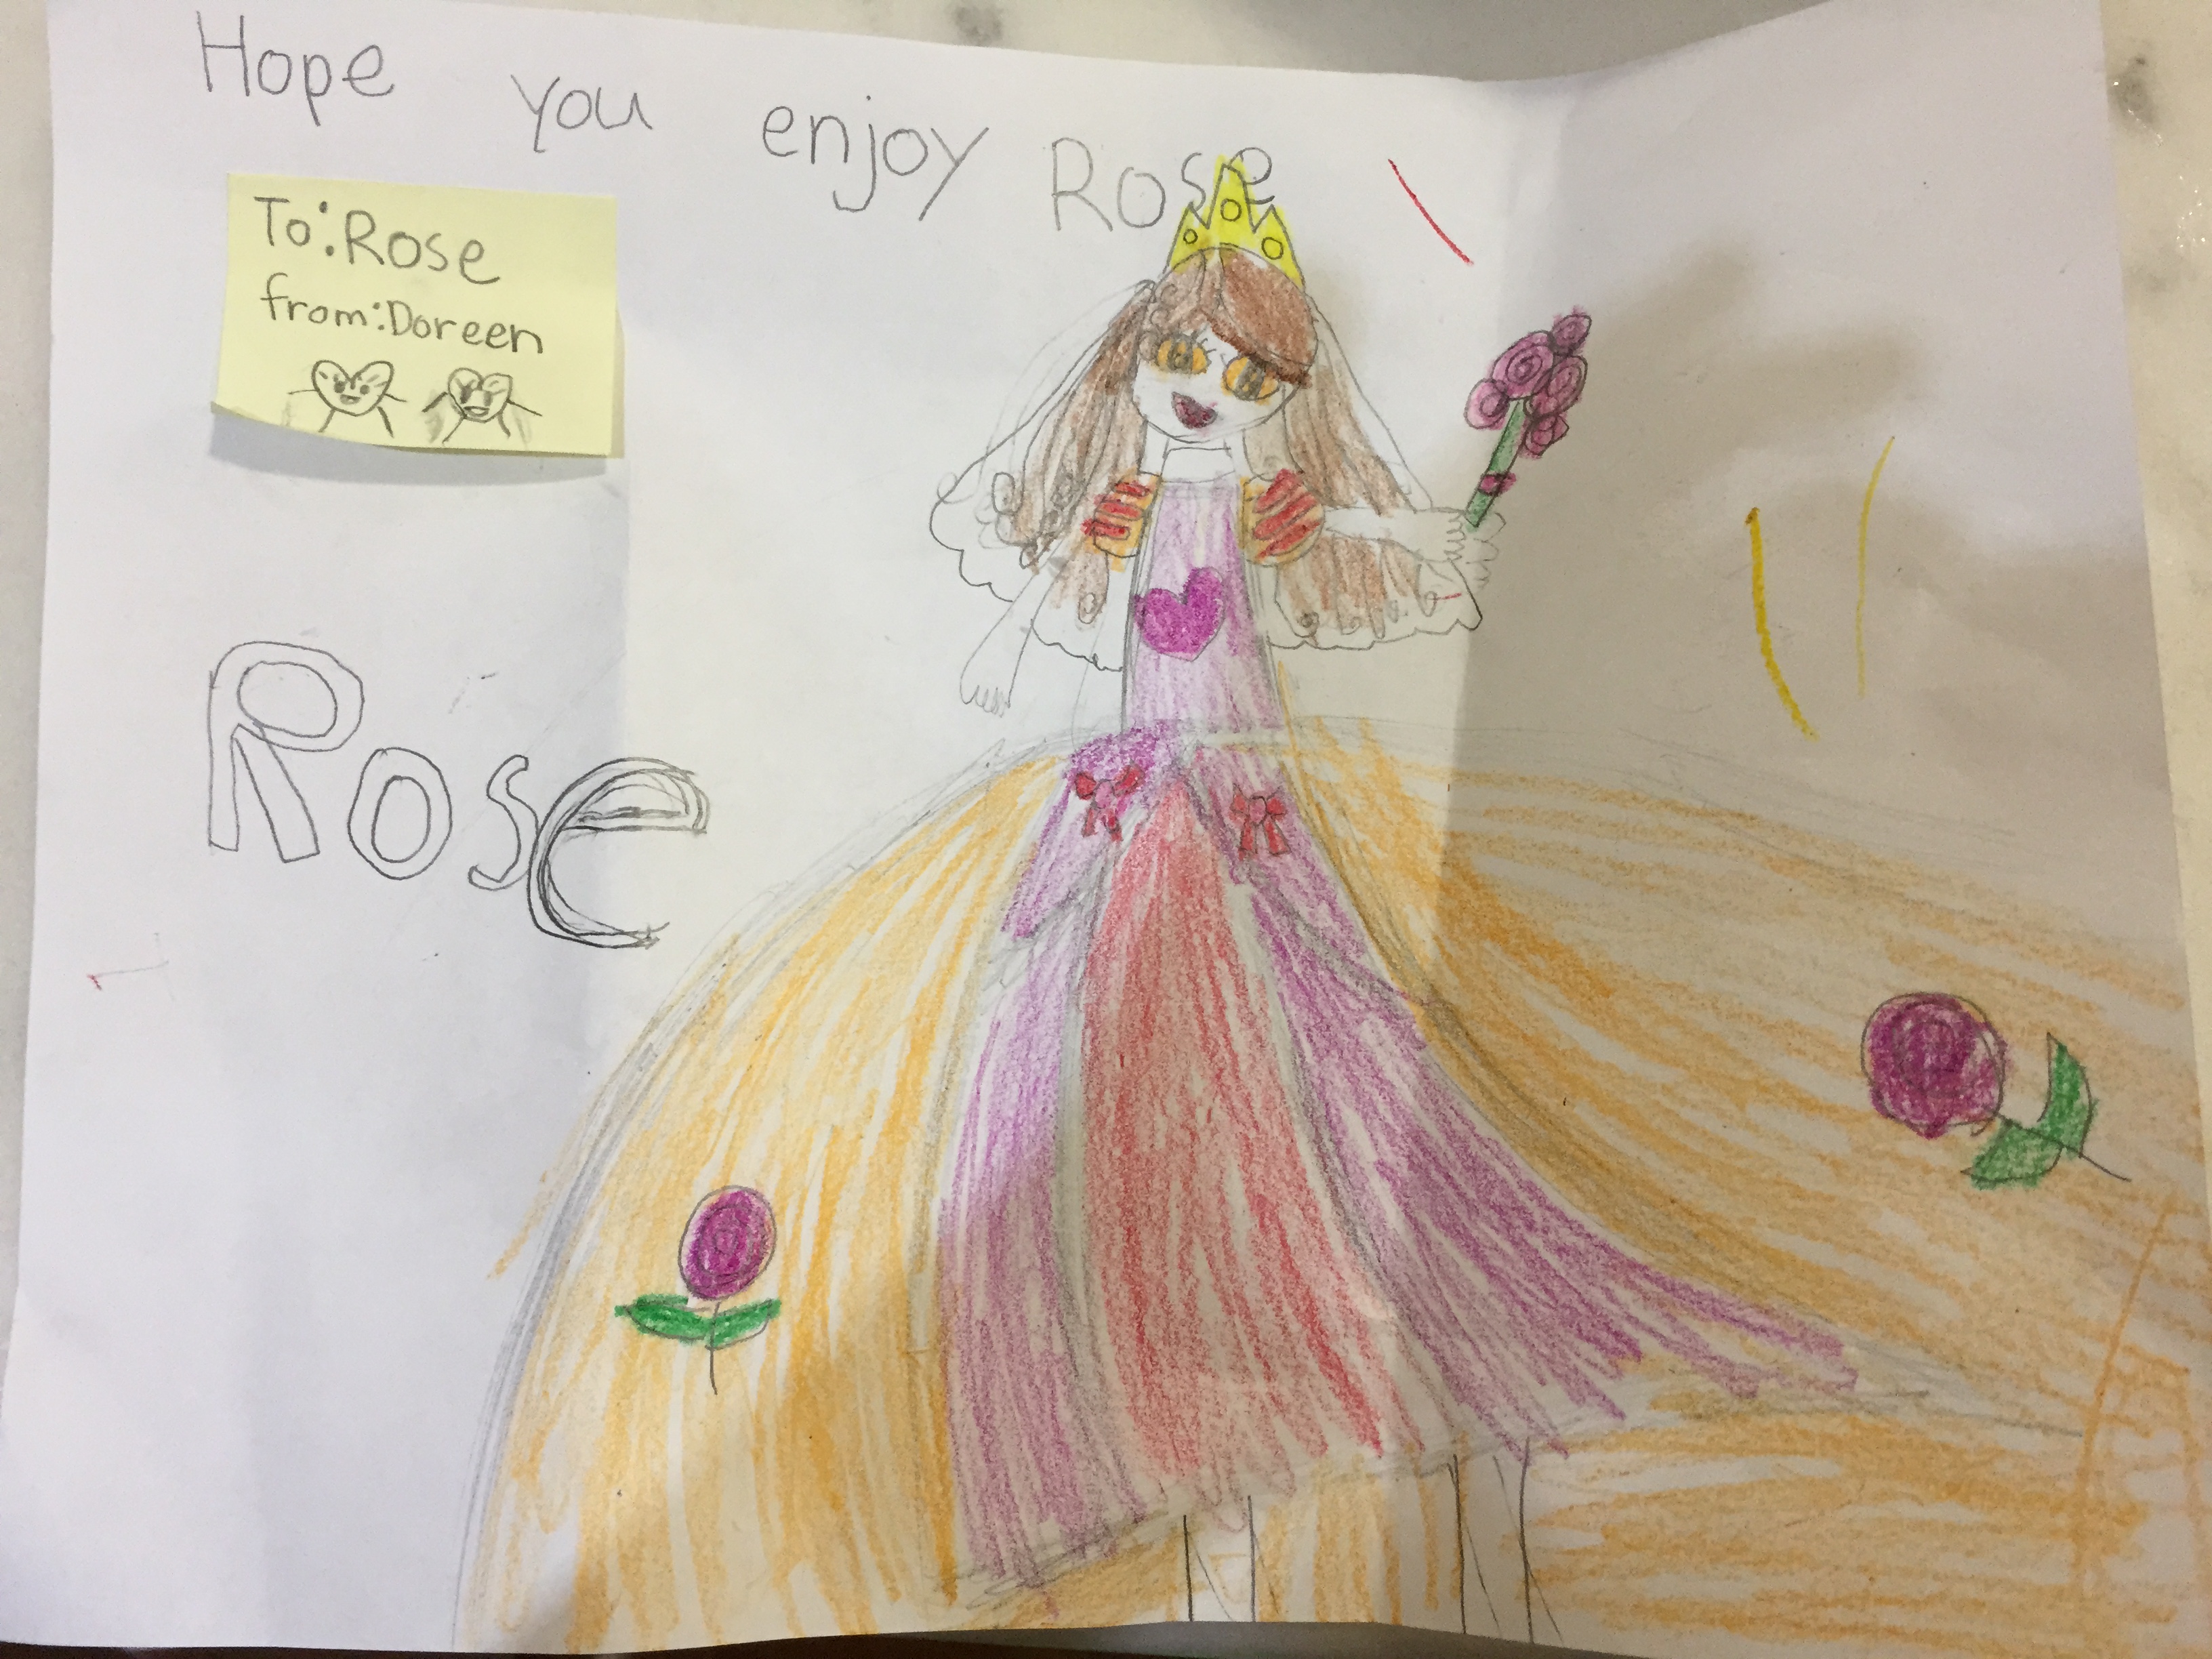 Hope you enjoy Rose
To: Rose
from: Doreen
Rose